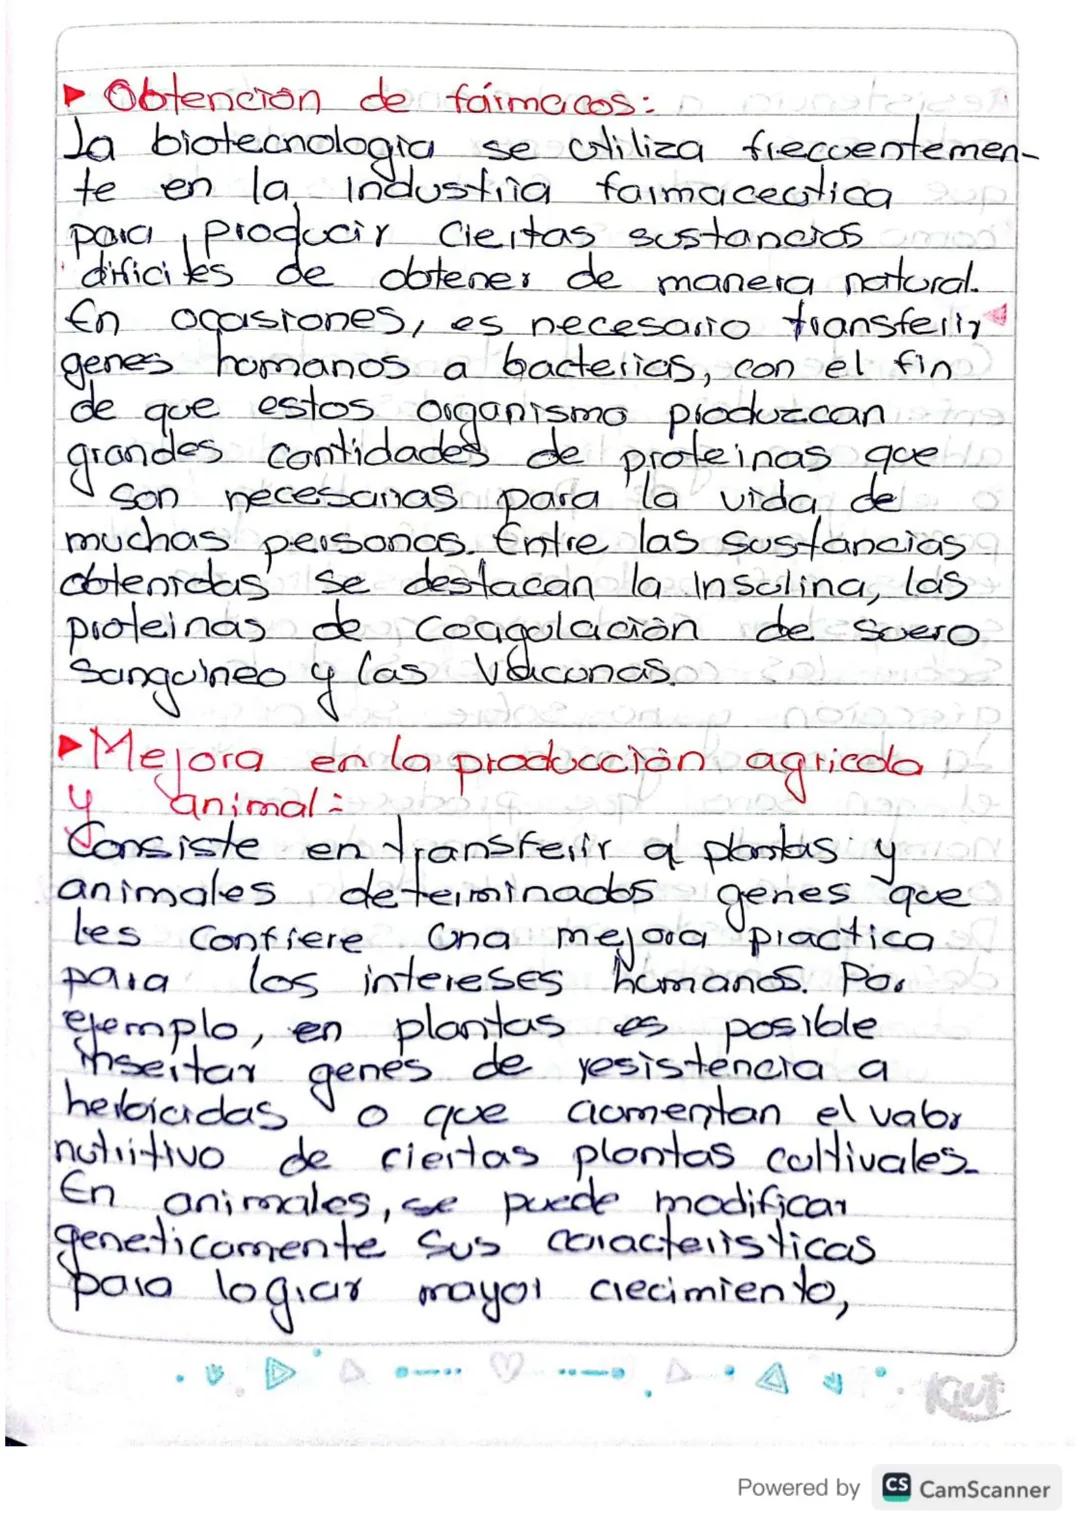 ▶ Obtención de fármacos:
La biotecnologia se utiliza frecuentemen-
te en la Industria farmaceutica
para producir Ciertas sustancias
dificiles de obtener de manera natural.
En ocasiones, es necesario transferir
genes homanos a bacterias, con el fin
de que estos organismo produzcan
grandes cantidades de proteinas que
son necesarias para la vida de
muchas personas. Entre las sustancias
obtenidas se destacan la Insulina, las
proteinas de coagulación de suero
sanguineo y las vacunas.
▶ Mejora en la producción agricola
y animal:
Consiste en transferir a plantas y
animales determinados genes que
les confiere una mejora practica
para los intereses humanos. Por
ejemplo, en plantas es posible
insertar genes de resistencia a
herbicidas o que aumentan el valor
nutritivo de ciertas plantas cultivales.
En animales, se puede modificar
geneticamente sus caracteristicas
para lograr mayor crecimiento,
Kiut
Powered by CS CamScanner